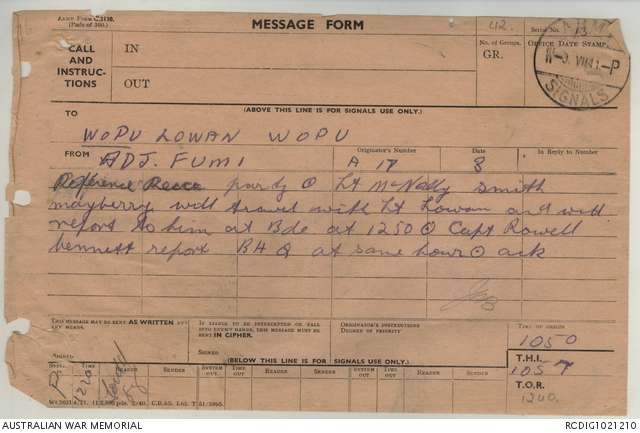 ARMY Form C.2130.
(Pads of 100.)
MESSAGE FORM
42.
Serial No. 13
CALL
AND
INSTRUC-
TIONS
IN
OUT
No. of Groups.
GR.
OFFICE DATE STAMP
SIGNALS
(ABOVE THIS LINE IS FOR SIGNALS USE ONLY.)
TO
WOPU LOWAN WOPU
FROM ADJ. FUMI
Originator's Number
A 17
Date
8
In Reply to Number
Reference Recce party O Lt McNally Smith
mayberry will travel with Lt Lowan and will
report to him at Bde at 1250 O Capt Rowell
bennett report BHQ at same hour O ack
THIS MESSAGE MAY BE SENT AS WRITTEN BY
ANY MEANS.
SIGNED
IF LIABLE TO BE INTERCEPTED OR FALL
INTO ENEMY HANDS, THIS MESSAGE MUST BE
SENT IN CIPHER.
SIGNED
ORIGINATOR'S INSTRUCTIONS
DEGREE OF PRIORITY
TIME OF ORIGIN
1050
(BELOW THIS LINE IS FOR SIGNALS USE ONLY.)
T.H.I.
1057
T.O.R.
1200.
SYSTEM IN
TIME IN
READER
SENDER
SYSTEM OUT
TIME OUT
READER
SENDER
SYSTEM OUT
TIME OUT
READER
SENDER
1220
AUSTRALIAN WAR MEMORIAL
RCDIG1021210